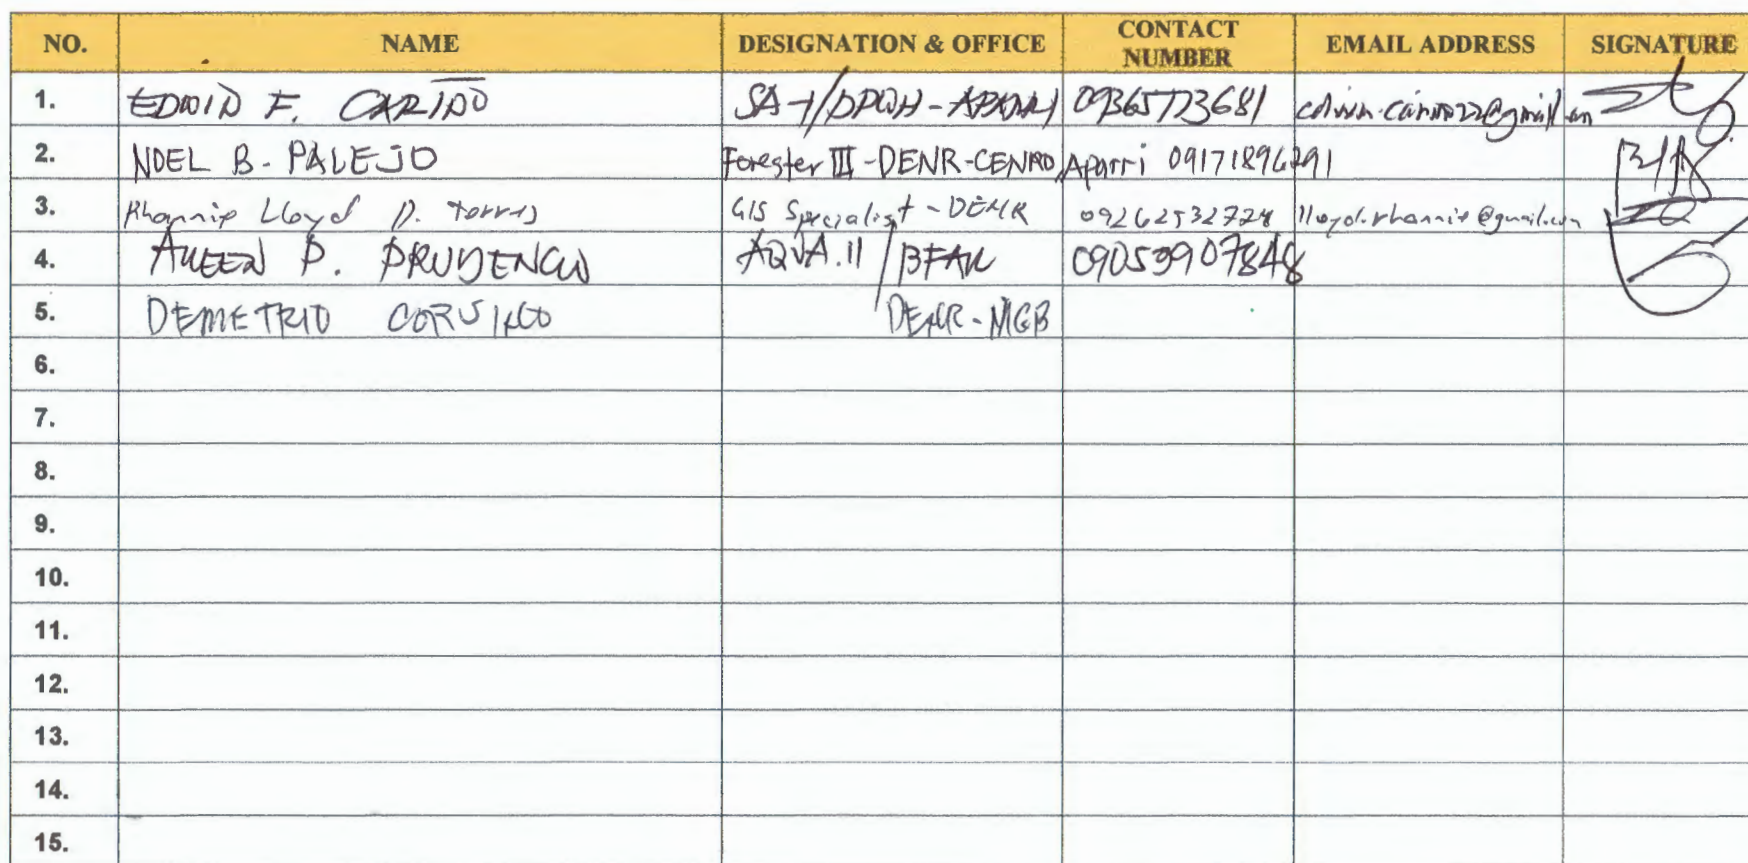 NO. NAME DESIGNATION & OFFICE CONTACT NUMBER EMAIL ADDRESS SIGNATURE
1. EDWIN F. CARIÑO SA-1/DPWH-APARRI 09365773681
2. NOEL B. PALEJO Forester III-DENR-CENRO, Aparri 09171896291
3. Rhannie Lloyd D. Torres GIS Specialist - DENR 09262532728 lloyd.rhannie@gmail.com
4. P. PRUDENCIO AQUA.II / BFAR 09059907848
5. DEMETRIO DENR-MGB
6.
7.
8.
9.
10.
11.
12.
13.
14.
15.